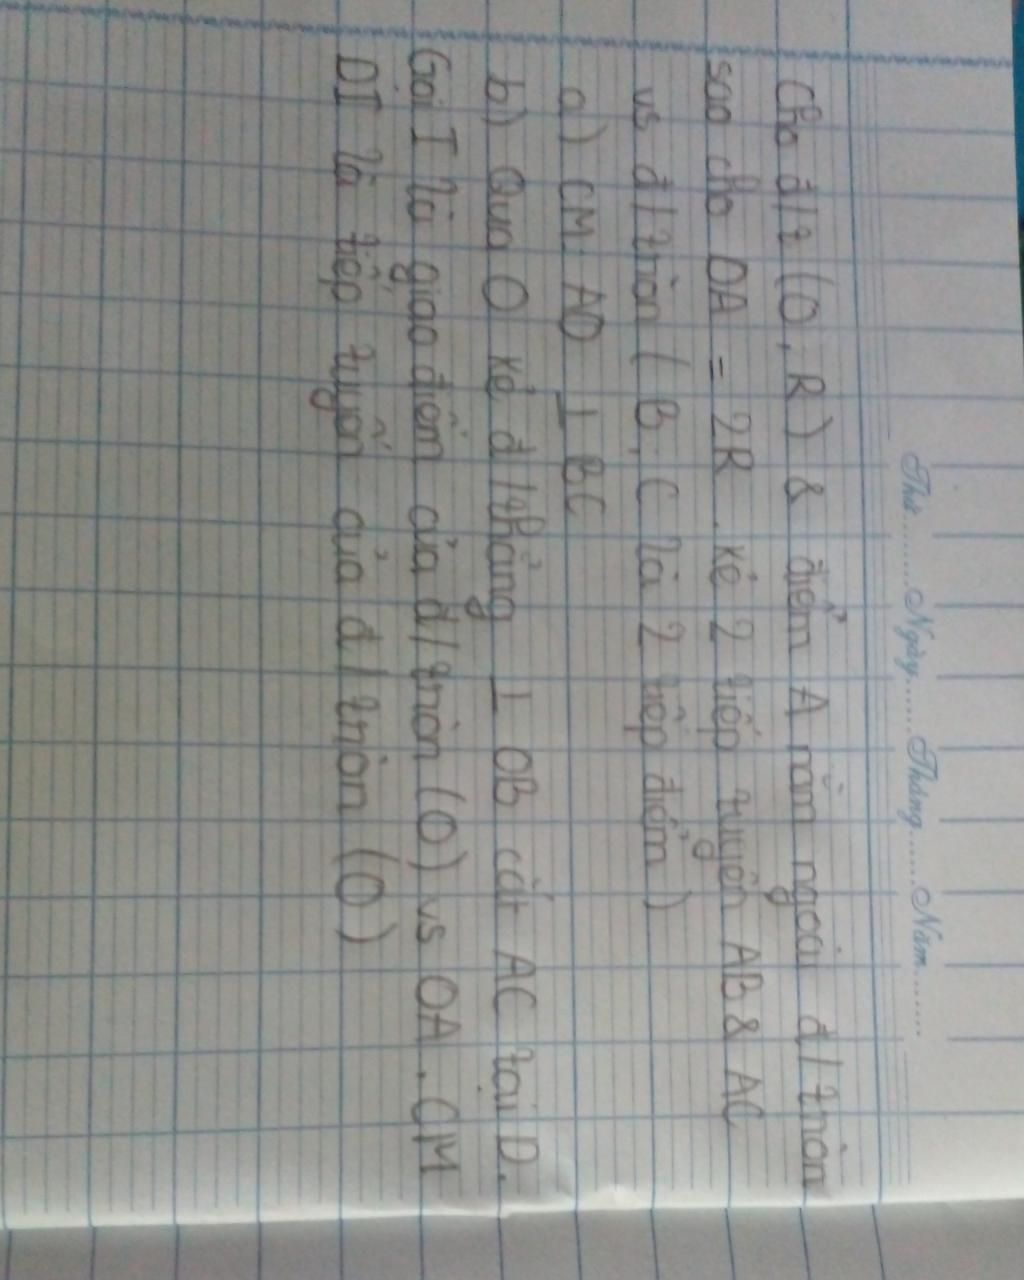 Thứ.........Ngày.......Tháng.......Năm.........
Cho đ/t (O, R) & điểm A nằm ngoài đ/tròn
sao cho OA = 2R. kẻ 2 tiếp tuyến AB & AC
vs đ/tròn (B, C là 2 tiếp điểm)
a) CM AO ⊥ BC
b) Qua O kẻ đ/thẳng ⊥ OB cắt AC tại D.
Gọi I là giao điểm của đ/tròn (O) vs OA. CM
DI là tiếp tuyến của đ/tròn (O)